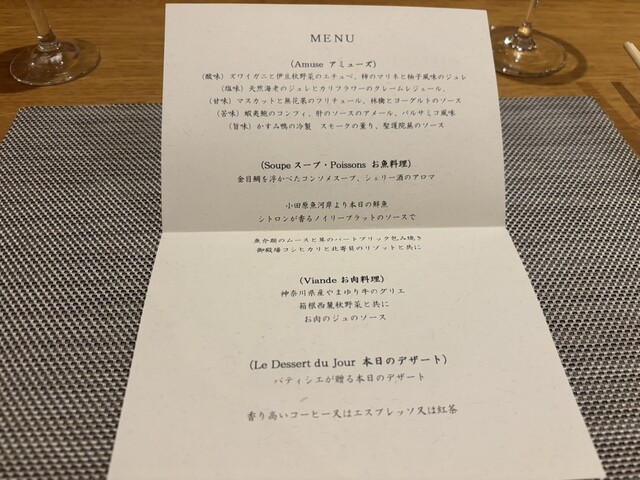 MENU
(Amuse アミューズ)
(酸味) ズワイガニと伊豆秋野菜のエチュベ、柿のマリネと柚子風味のジュレ
(塩味) 天然海老のジュレとカリフラワーのクレームレジュール、
(甘味) マスカットと無花果のフリチュール、林檎とヨーグルトのソース
(苦味) 蝦夷鮑のコンフィ、肝のソースのアメール、バルサミコ風味
(旨味) かすみ鴨の冷製 スモークの薫り、聖護院蕪のソース
(Soupe スープ・Poissons お魚料理)
金目鯛を浮かべたコンソメスープ、シェリー酒のアロマ
小田原魚河岸より本日の鮮魚
シトロンが香るノイリープラットのソースで
魚介類のムースと茸のパートブリック包み焼き
御殿場コシヒカリと北寄貝のリゾットと共に
(Viande お肉料理)
神奈川県産やまゆり牛のグリエ
箱根西麓秋野菜と共に
お肉のジュのソース
(Le Dessert du Jour 本日のデザート)
パティシエが贈る本日のデザート
香り高いコーヒー又はエスプレッソ又は紅茶